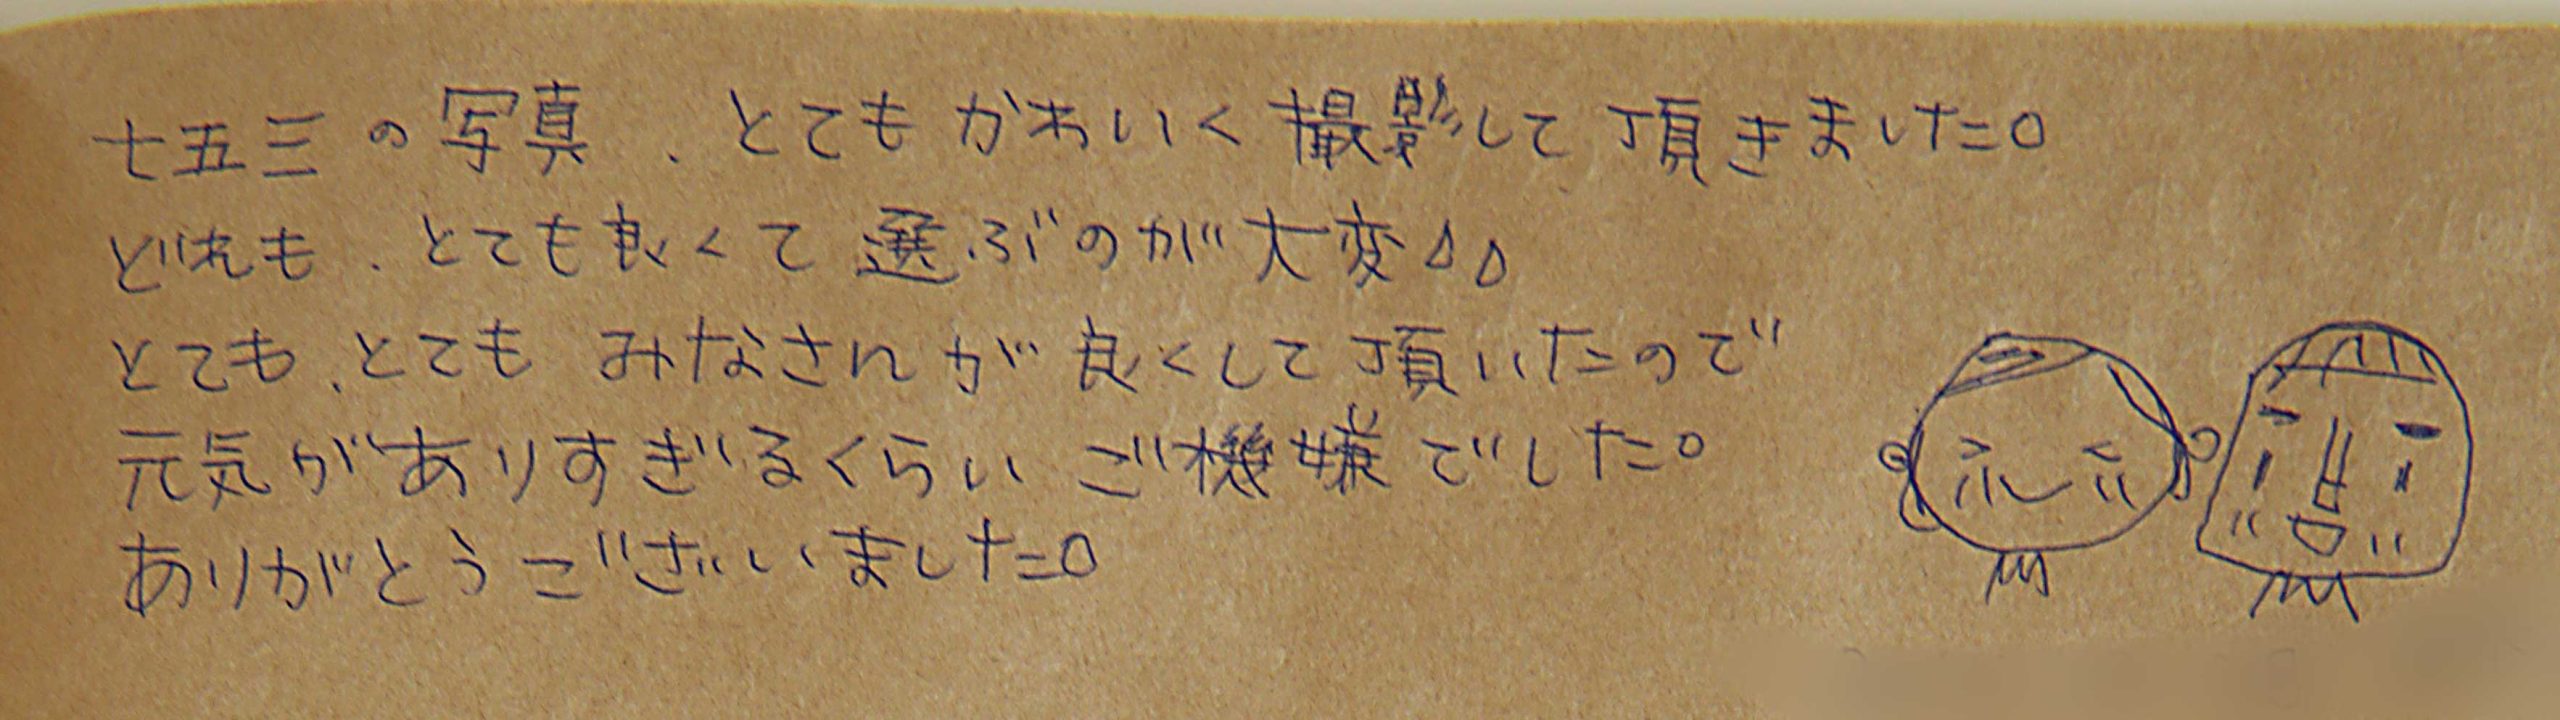 七五三の写真、とてもかわいく撮影して頂きました。
どれも、とても良くて選ぶのが大変💧💧
とても、とても みなさんが良くして頂いたので
元気がありすぎるくらい ご機嫌でした。
ありがとうございました。